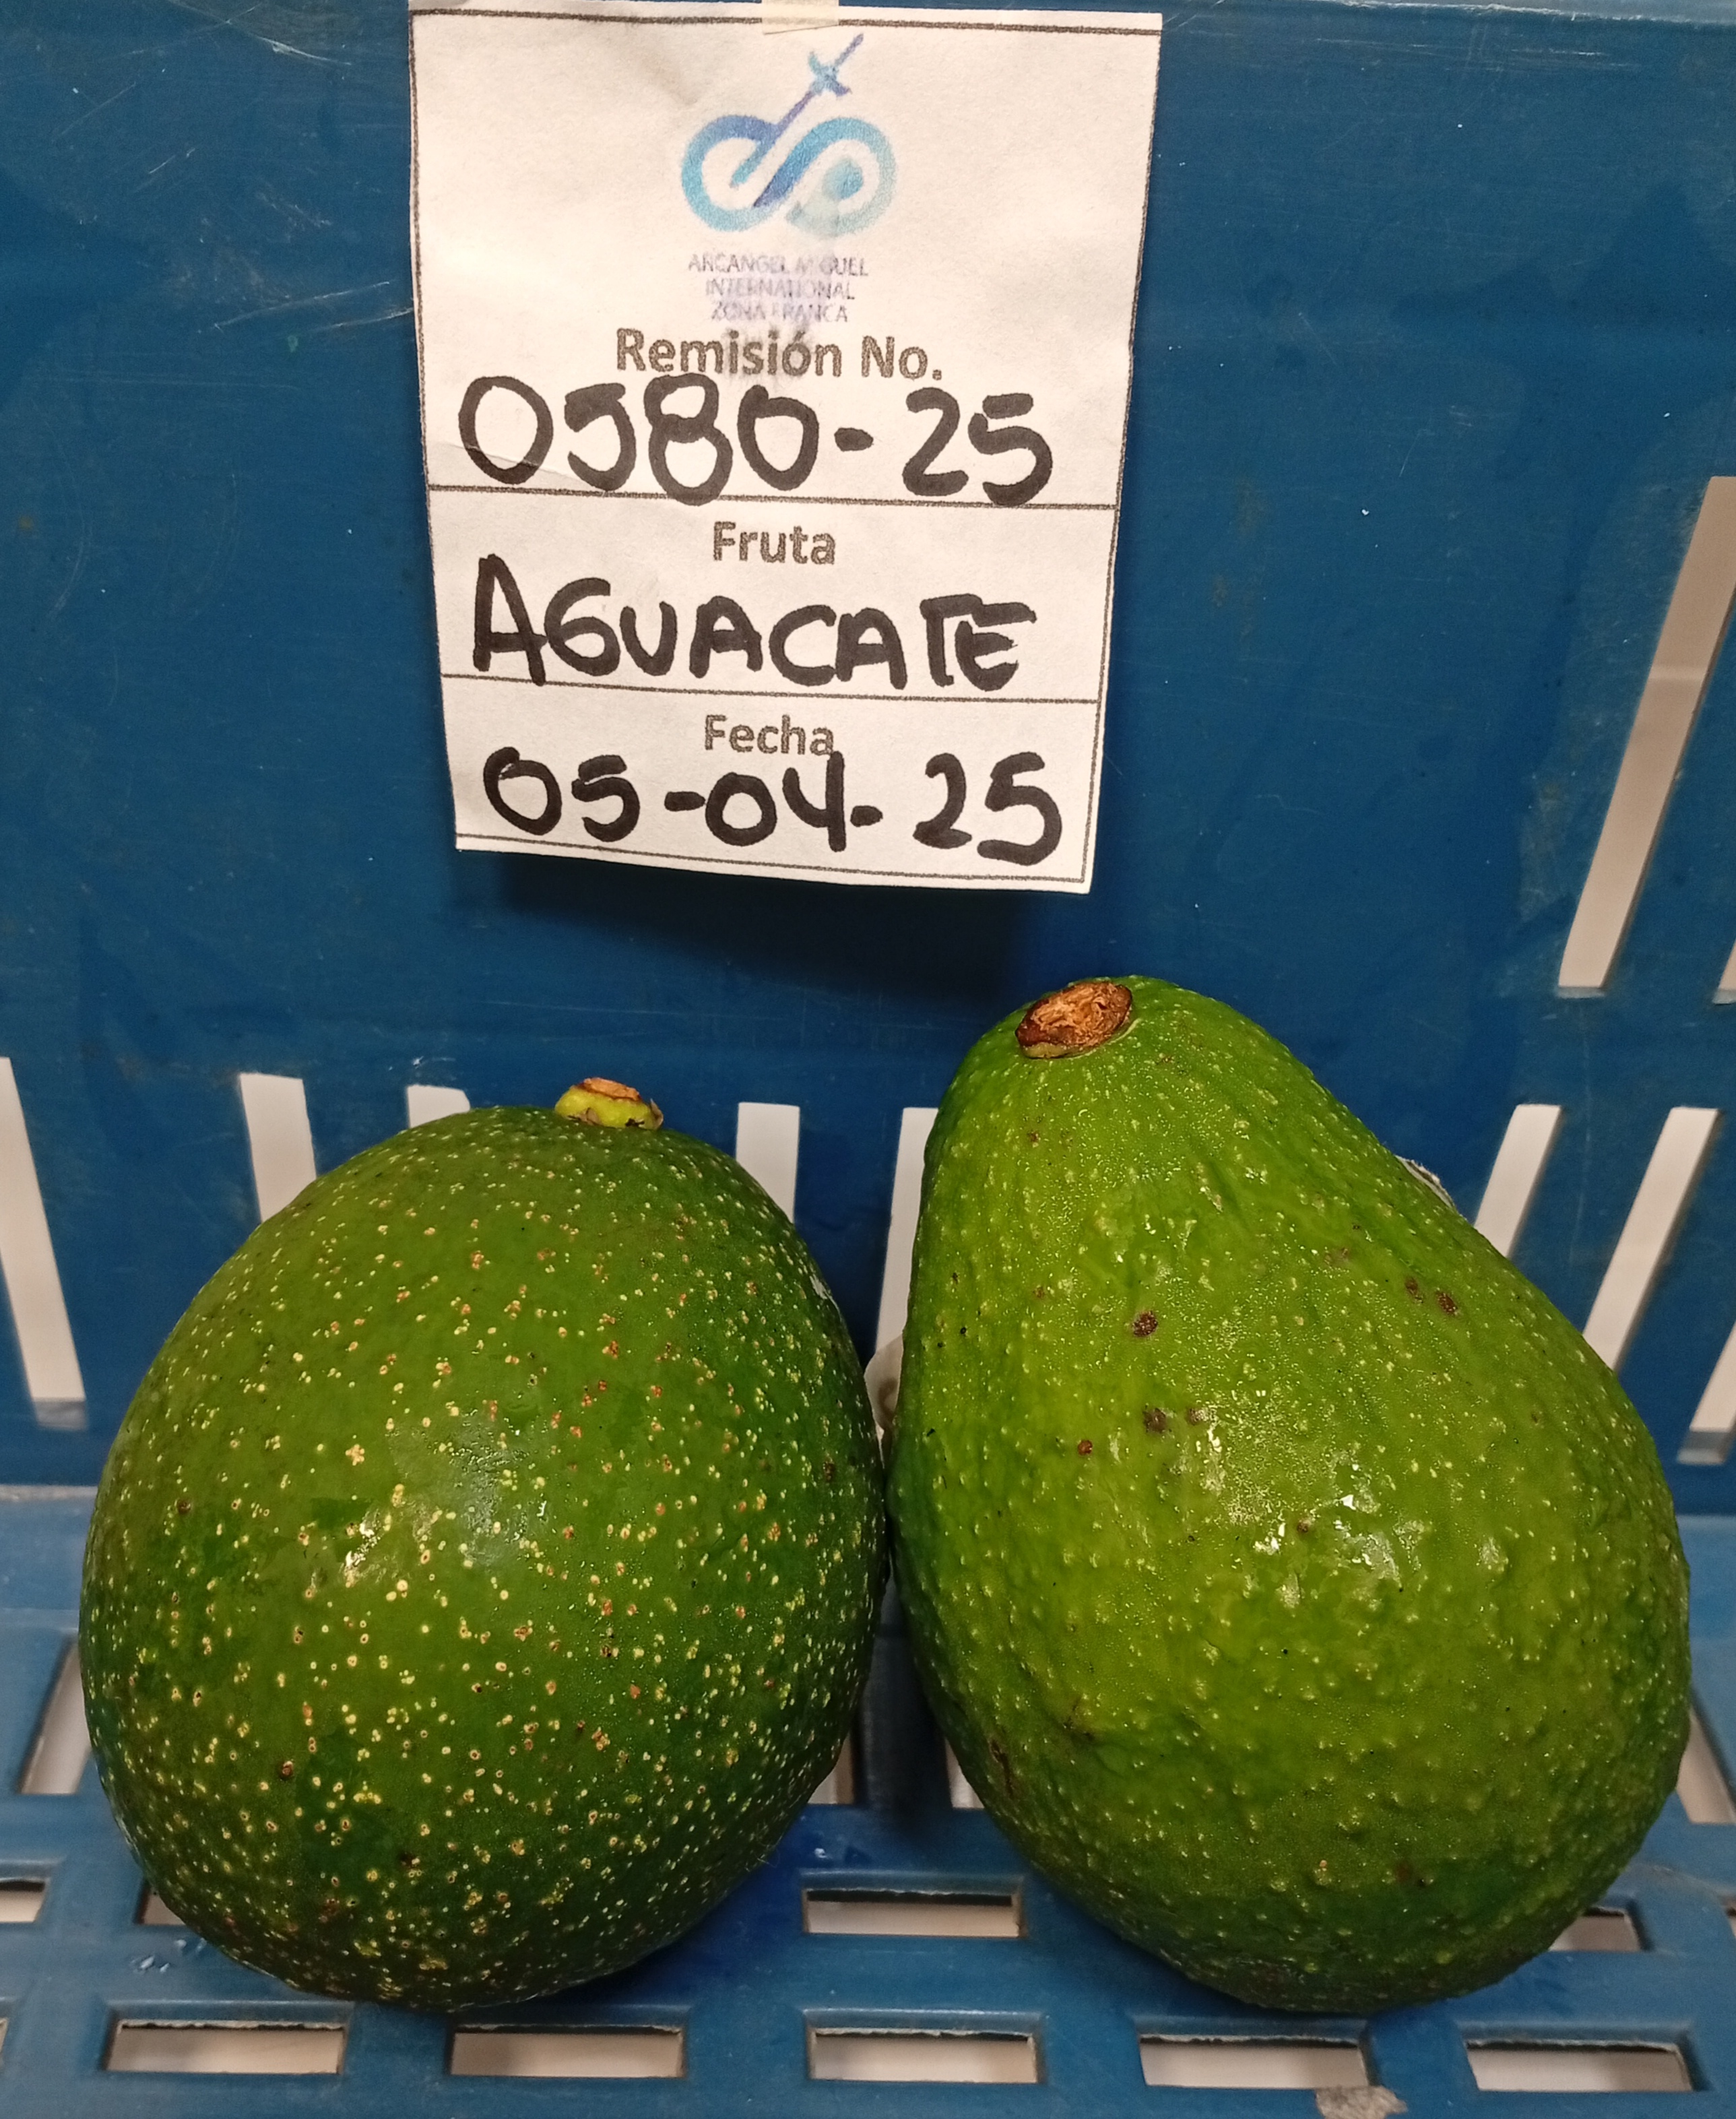 ARCANGEL MIGUEL
INTERNATIONAL
ZONA FRANCA
Remisión No.
0580-25
Fruta
AGUACATE
Fecha
05-04-25